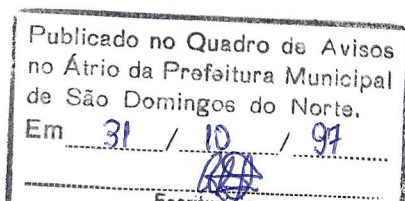 Publicado no Quadro de Avisos
no Átrio da Prefeitura Municipal
de São Domingos do Norte.
Em 31 / 10 / 97